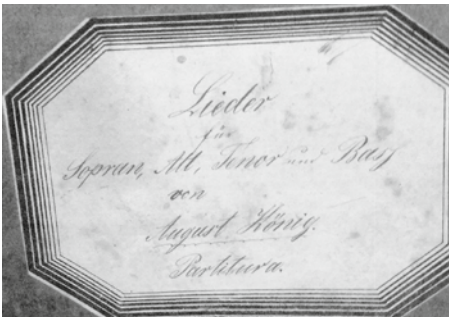 Lieder
für
Sopran, Alt, Tenor und Bass
von
August König.
Partitura.